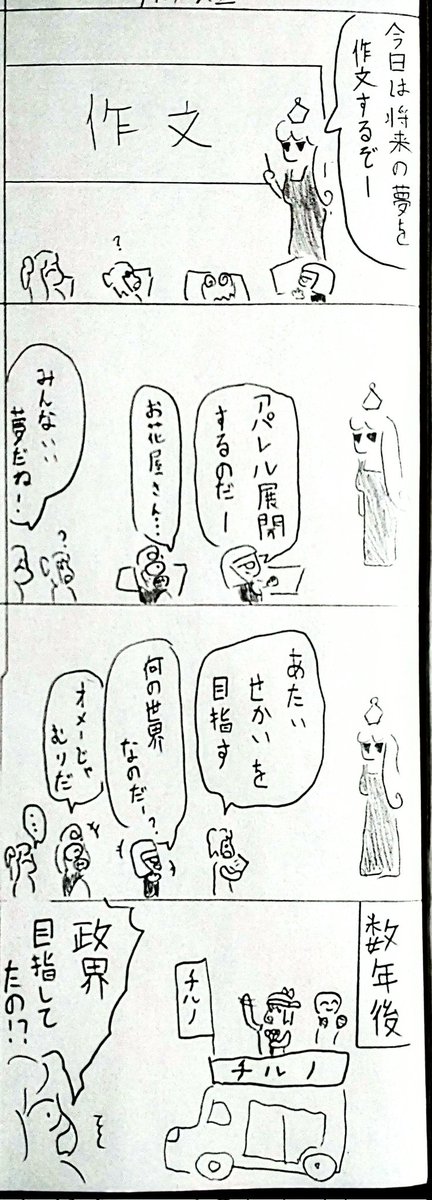 今日は将来の夢を
作文するぞー
作文
?
アパレル展開
するのだー
お花屋さん…
みんないい
夢だね!
?
あたい
せかいを
目指す
何の世界
なのだー?
オメーじゃ
むりだ
…
数年後
チルノ
チルノ
政界
目指して
たの!?